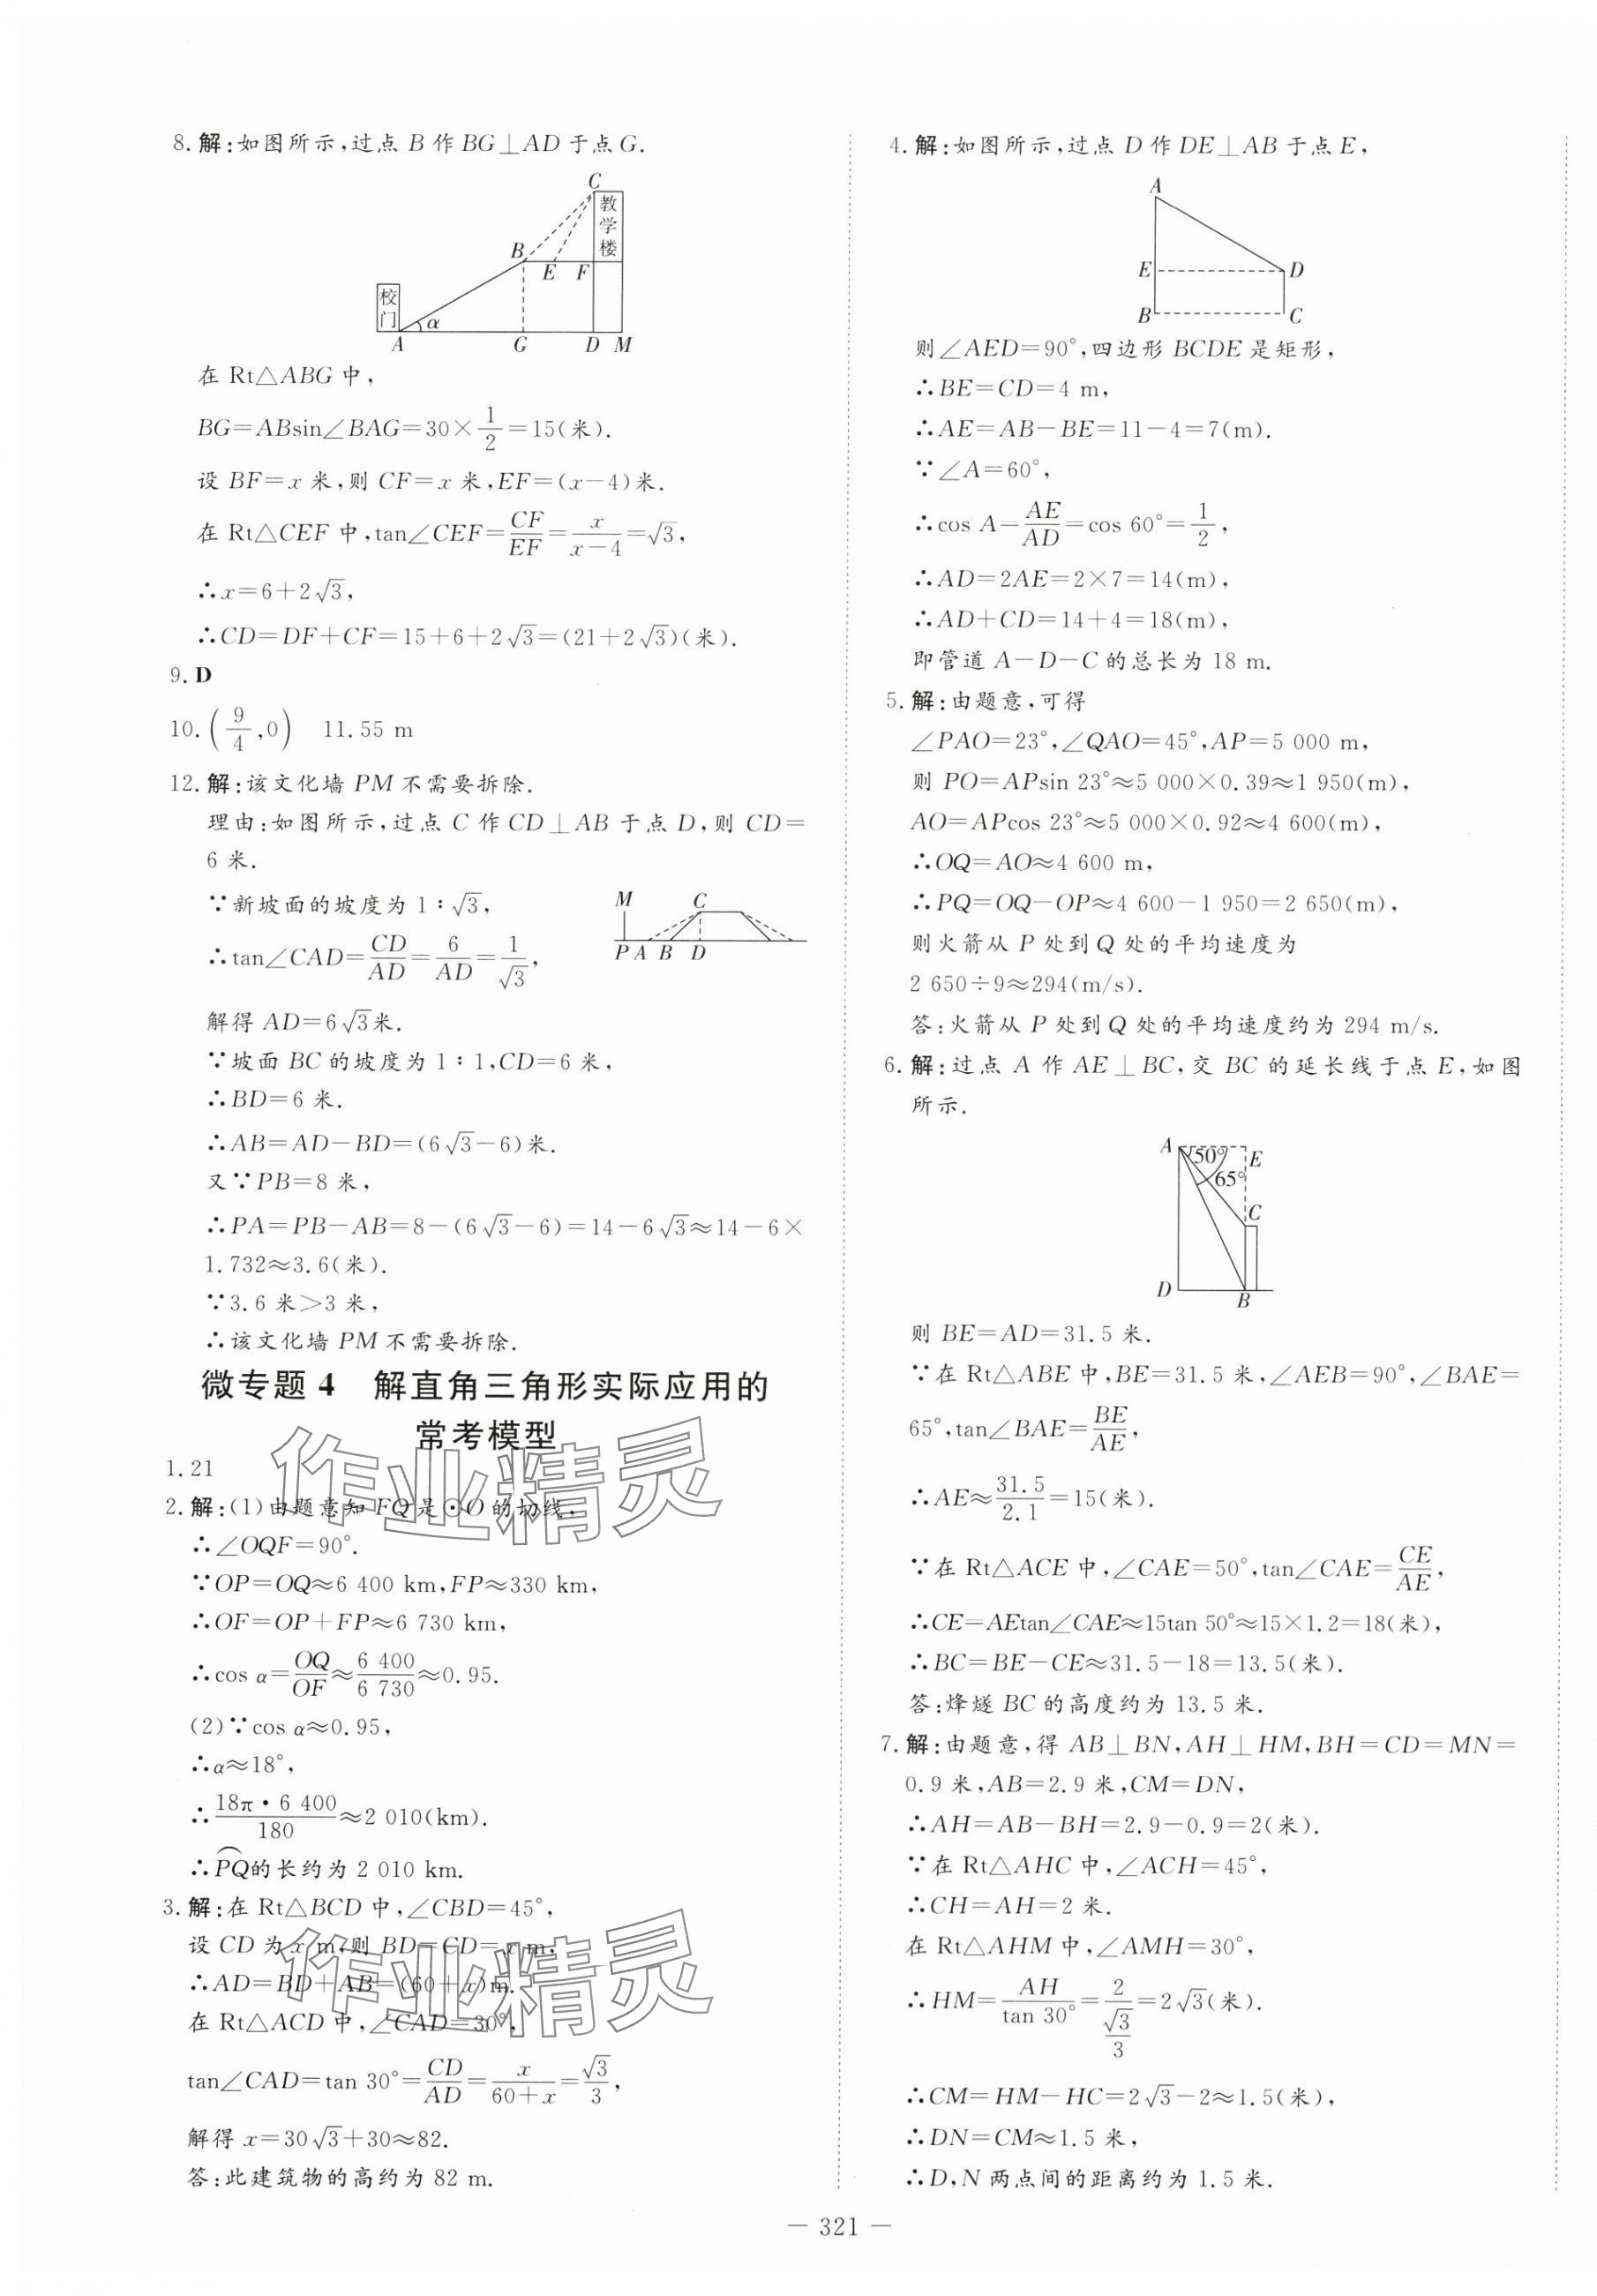 8. 解:如图所示,过点 B 作 BG⊥AD 于点 G.
C
教学楼
B
E F
校门
α
A G D M
在 Rt△ABG 中,
BG=ABsin∠BAG=30×1/2=15(米).
设 BF=x 米,则 CF=x 米,EF=(x-4)米.
在 Rt△CEF 中,tan∠CEF=CF/EF=x/(x-4)=√3,
∴x=6+2√3,
∴CD=DF+CF=15+6+2√3=(21+2√3)(米).
9. D
10. (9/4,0) 11. 55 m
12. 解:该文化墙 PM 不需要拆除.
理由:如图所示,过点 C 作 CD⊥AB 于点 D,则 CD=
6 米.
∵新坡面的坡度为 1∶√3,
∴tan∠CAD=CD/AD=6/AD=1/√3,
M C
P A B D
解得 AD=6√3米.
∵坡面 BC 的坡度为 1∶1,CD=6 米,
∴BD=6 米.
∴AB=AD-BD=(6√3-6)米.
又∵PB=8 米,
∴PA=PB-AB=8-(6√3-6)=14-6√3≈14-6×
1.732≈3.6(米).
∵3.6 米>3 米,
∴该文化墙 PM 不需要拆除.
微专题 4 解直角三角形实际应用的
常考模型
1. 21
2. 解:(1)由题意知 FQ 是⊙O 的切线,
∴∠OQF=90°.
∵OP=OQ≈6 400 km,FP≈330 km,
∴OF=OP+FP≈6 730 km,
∴cos α=OQ/OF≈6 400/6 730≈0.95.
(2)∵cos α≈0.95,
∴α≈18°,
∴18π·6 400/180≈2 010(km).
∴⌒PQ的长约为 2 010 km.
3. 解:在 Rt△BCD 中,∠CBD=45°,
设 CD 为 x m,则 BD=CD=x m,
∴AD=BD+AB=(60+x)m.
在 Rt△ACD 中,∠CAD=30°,
tan∠CAD=tan 30°=CD/AD=x/(60+x)=√3/3,
解得 x=30√3+30≈82.
答:此建筑物的高约为 82 m.
4. 解:如图所示,过点 D 作 DE⊥AB 于点 E,
A
E D
B C
则∠AED=90°,四边形 BCDE 是矩形,
∴BE=CD=4 m,
∴AE=AB-BE=11-4=7(m).
∵∠A=60°,
∴cos A-AE/AD=cos 60°=1/2,
∴AD=2AE=2×7=14(m),
∴AD+CD=14+4=18(m),
即管道 A-D-C 的总长为 18 m.
5. 解:由题意,可得
∠PAO=23°,∠QAO=45°,AP=5 000 m,
则 PO=APsin 23°≈5 000×0.39≈1 950(m),
AO=APcos 23°≈5 000×0.92≈4 600(m),
∴OQ=AO≈4 600 m,
∴PQ=OQ-OP≈4 600-1 950=2 650(m),
则火箭从 P 处到 Q 处的平均速度为
2 650÷9≈294(m/s).
答:火箭从 P 处到 Q 处的平均速度约为 294 m/s.
6. 解:过点 A 作 AE⊥BC,交 BC 的延长线于点 E,如图
所示.
A 50° E
65°
C
D B
则 BE=AD=31.5 米.
∵在 Rt△ABE 中,BE=31.5 米,∠AEB=90°,∠BAE=
65°,tan∠BAE=BE/AE,
∴AE≈31.5/2.1=15(米).
∵在 Rt△ACE 中,∠CAE=50°,tan∠CAE=CE/AE,
∴CE=AEtan∠CAE≈15tan 50°≈15×1.2=18(米),
∴BC=BE-CE≈31.5-18=13.5(米).
答:烽燧 BC 的高度约为 13.5 米.
7. 解:由题意,得 AB⊥BN,AH⊥HM,BH=CD=MN=
0.9 米,AB=2.9 米,CM=DN,
∴AH=AB-BH=2.9-0.9=2(米).
∵在 Rt△AHC 中,∠ACH=45°,
∴CH=AH=2 米.
在 Rt△AHM 中,∠AMH=30°,
∴HM=AH/tan 30°=2/(√3/3)=2√3(米).
∴CM=HM-HC=2√3-2≈1.5(米),
∴DN=CM≈1.5 米,
∴D,N 两点间的距离约为 1.5 米.
— 321 —
作业精灵
作业精灵